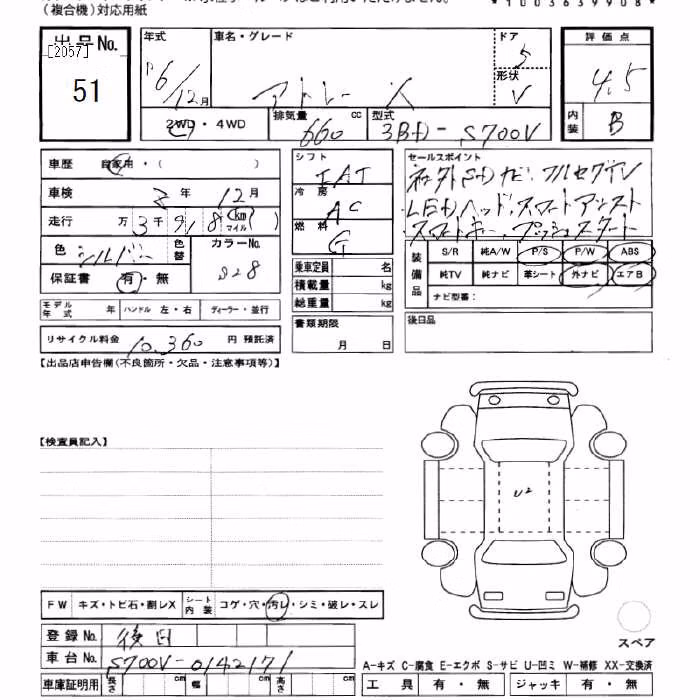 （複合機）対応用紙
*1003639908*
出品No. [2057] 51
年式 R6/12月
車名・グレード アトレー X
ドア 5
形状 V
評価点 4.5
内装 B
2WD・4WD
排気量 660 cc
型式 3BD-S700V
車歴 自家用・( )
車検 年 12月
走行 万 3千 9 8 km マイル ( )
色 シルバー 色替
カラーNo. S28
保証書 有・無
シフト IAT
冷房 AC
燃料 G
乗車定員 名
積載量 kg
総重量 kg
セールスポイント
ネット外SDナビ、フルセグTV
LEDヘッド、スマートアシスト
スマートキー、プッシュスタート
装備品
S/R 純A/W P/S P/W ABS
純TV 純ナビ 革シート 外ナビ エアB
ナビ型番：
モデル年式 年 ハンドル 左・右 ディーラー・並行
書類期限 月 日
後日品
リサイクル料金 10,360 円 預託済
【出品店申告欄(不良箇所・欠品・注意事項等)】
【検査員記入】
U2
FW キズ・トビ石・割レX シート内装 コゲ・穴・汚レ・シミ・破レ・スレ
登録No. 後日
車台No. S700V-0142171
スペア
車庫証明用 長さ cm 幅 cm 高さ cm
A-キズ C-腐食 E-エクボ S-サビ U-凹ミ W-補修 XX-交換済
工具 有・無 ジャッキ 有・無